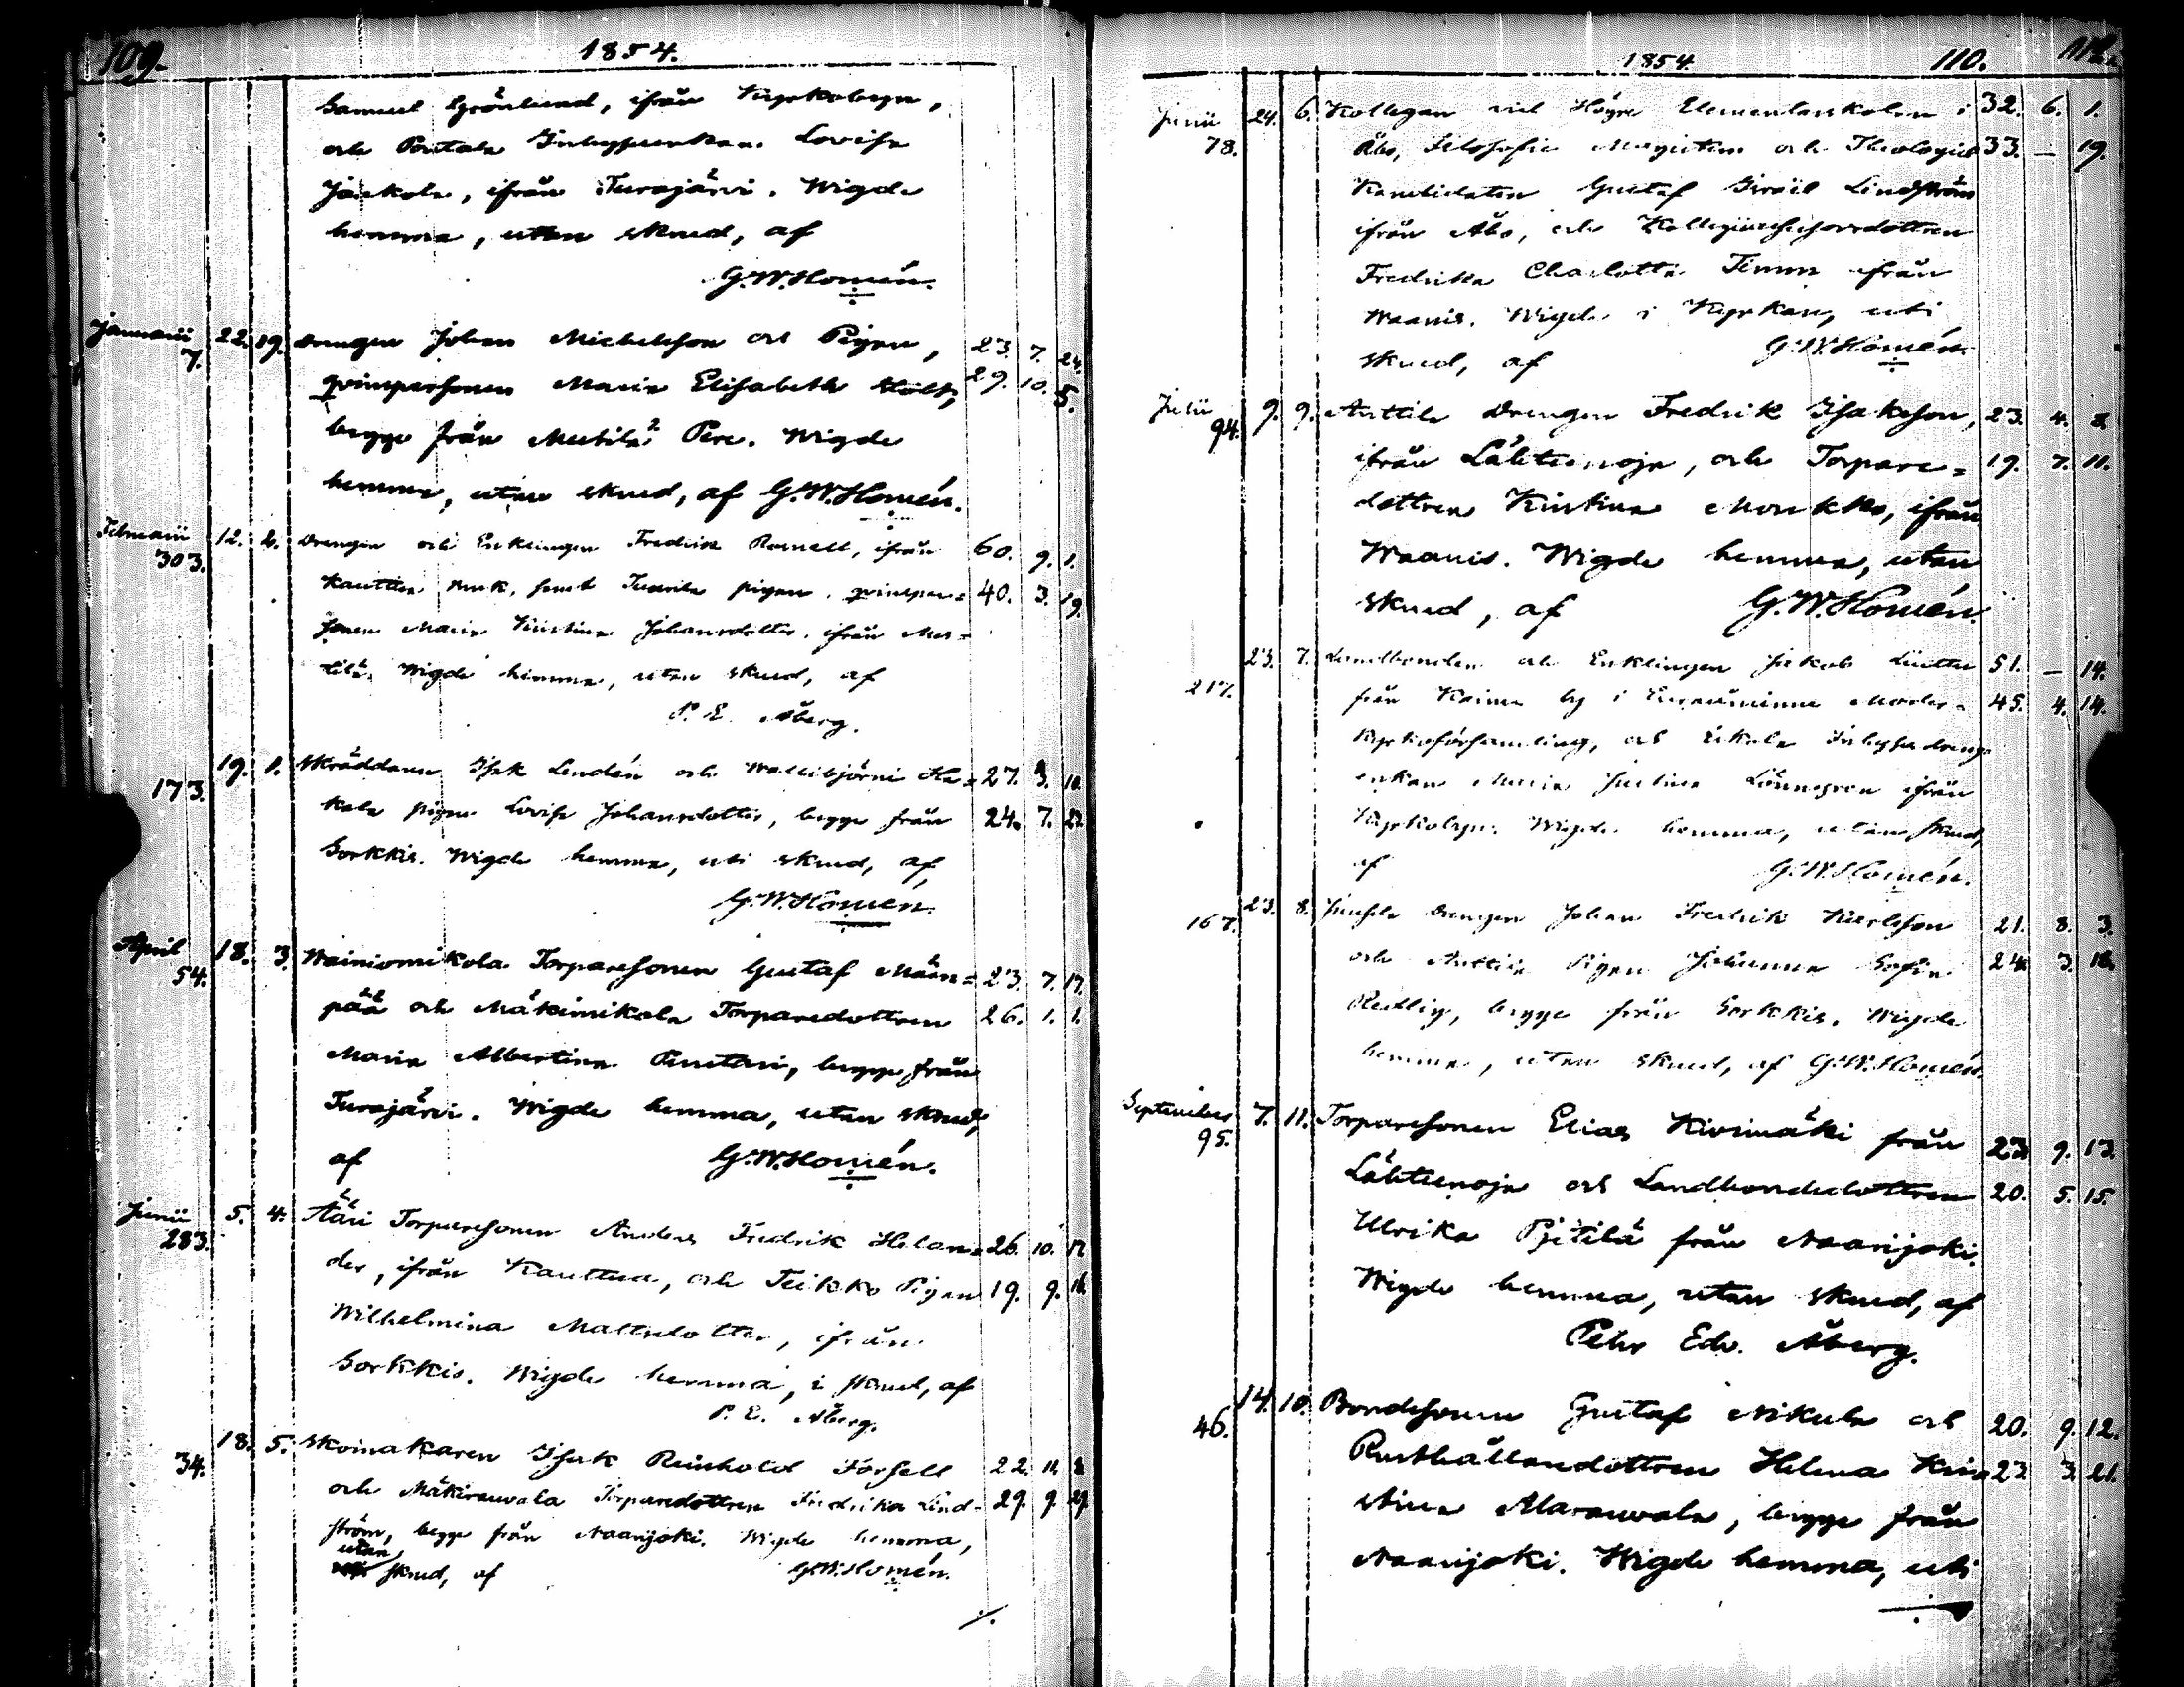 109.
1854.
Samuel Grönlund, ifrån Kyrkobyn,
och Pontala Inhysesenkan Lovisa
Jaakola, ifrån Turajärvi. Wigde
hemma, utan skrud, af
G.W.Homén.
Januarii 22. 19. Drengen Johan Michelsson och Pigan, 23. 7. 24.
7. qvinspersonen Maria Elisabeth 29. 10. 5.
begge från Mestilä Pere. Wigde
hemma, utan skrud, af G.W.Homén.
Februarii 12. 2. Drengen och Enklingen Fredrik Ramell, ifrån 60. 9. 1.
303. Kauttua Bruk, samt Tuurila pigan, qvinsper= 40. 3. 19.
sonen Maria Kristina Johansdotter, ifrån Mes=
tilä. Wigde hemma, utan skrud, af
P. E. Åberg.
19. 1. Skräddaren Isak Lindén och Wallibjörni Ka= 27. 3. 10.
173. kola pigan Lovisa Johansdotter, begge från 24. 7. 22.
Sorkkis. Wigde hemma, uti skrud, af
G.W.Homén.
April 18. 3. Wainiomikola Torparesonen Gustaf Män= 23. 7. 17.
54. pää och Mäkimikola Torparedottren 26. 1. 1.
Maria Albertina Puntari, begge från
Turajärvi. Wigde hemma, utan skrud,
af G.W.Homén.
Junii 5. 4. Ääri Torparesonen Anders Fredrik Helan= 26. 10. 17.
283. der, ifrån Kauttua, och Teikko Pigan 19. 9. 16.
Wilhelmina Mattsdotter, ifrån
Sorkkis. Wigde hemma, i skrud, af
P. E. Åberg.
18. 5. Skomakaren Isak Reinhold Forsell 22. 11. 8.
34. och Mäkirauvola Torparedottren Fredrika Lind- 29. 9. 29.
ström, begge från Naarijoki. Wigde hemma,
utan
skrud, af G.W.Homén.
./.
1854.
110.
Junii 24. 6. Kollegan vid Högre Elementarskolan i 32. 6. 1.
78. Åbo, Filosofie Magistern och Theologie 33. — 19.
Kandidaten Gustaf Israël Lindström
ifrån Åbo, och Kollegiiassessorsdottren
Fredrika Charlotta Timm ifrån
Waanis. Wigde i Kyrkan, uti
skrud, af G.W.Homén.
Julii 9. 9. Anttila Drengen Fredrik Isaksson, 23. 4. 8.
94. ifrån Lähteenoja, och Torpare= 19. 7. 11.
dottren Kristina Monkko, ifrån
Waanis. Wigde hemma, utan
skrud, af G.W.Homén.
23. 7. Landbonden och Enklingen Jakob 51. — 14.
217. från Kainu by i Euraåminne Moder= 45. 4. 14.
kyrkoförsamling, och Eikola Inhyses drengs
enkan Maria Justina Lönngren ifrån
Kyrkobyn. Wigde hemma, utan skrud,
af G.W.Homén.
23. 8. Juusela Drengen Johan Fredrik Karlsson 21. 8. 3.
167. och Anttila Pigan Johanna Sofia 24. 3. 18.
Redlig, begge från Sorkkis. Wigde
hemma, utan skrud, af G.W.Homén.
September 7. 11. Torparesonen Elias Kivimäki från 23. 9. 13.
95. Lähteenoja och Landbondedottren 20. 5. 15.
Ulrika Pjetilä från Naarijoki.
Wigde hemma, utan skrud, af
Pehr Edv. Åberg.
14. 10. Bondesonen Gustaf Nikula och 20. 9. 12.
46. Rusthållaredottren Helena Kris= 23. 3. 21.
tina Alarauvola, begge från
Naarijoki. Wigde hemma, uti